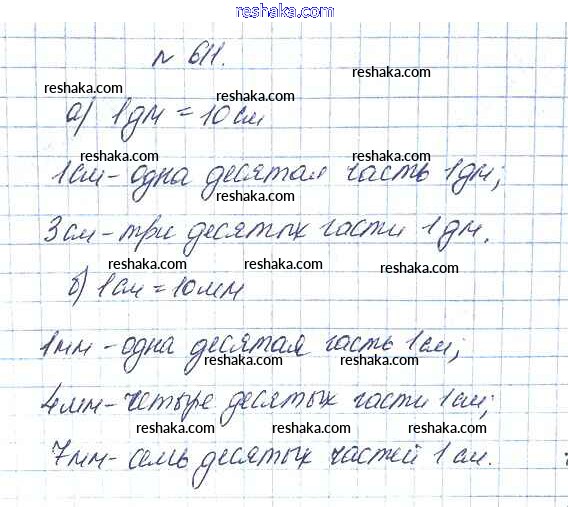 reshaka.com
№ 611.
reshaka.com reshaka.com
а) 1дм = 10см
reshaka.com reshaka.com
reshaka.com reshaka.com
1см - одна десятая часть 1дм;
reshaka.com reshaka.com
3см - три десятых части 1дм.
reshaka.com reshaka.com reshaka.com
б) 1см = 10мм
reshaka.com reshaka.com
1мм - одна десятая часть 1см;
reshaka.com reshaka.com
4мм - четыре десятых части 1см;
reshaka.com reshaka.com
7мм - семь десятых частей 1см.
reshaka.com reshaka.com